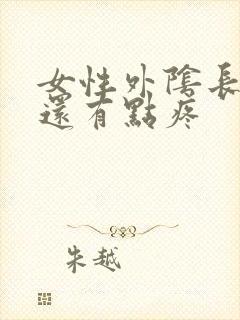 女性外陰長
還有點疼
朱越